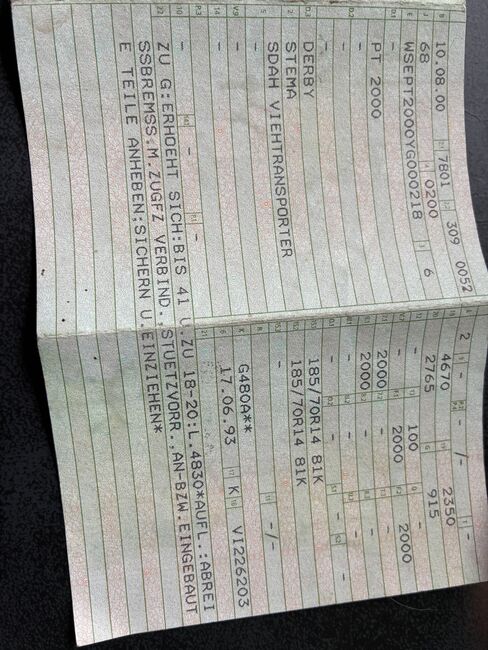 10.08.00 7801 309 0052
68 0200 6
WSEPT2000YG000218
PT 2000
DERBY
STEMA
SDAH VIEHTRANSPORTER
2 - - /-
4670 2350
2765 915
- 100 -
- 2000 2000
2000 -
2000 -
- - -
185/70R14 81K - -
185/70R14 81K
- -/-
G480A**
17.06.93 K VI226203
ZU G:ERHOEHT SICH:BIS 41 U.ZU 18-20:L.4830*AUFL.:ABREI
SSBREMSS.M.ZUGFZ VERBIND.,STUETZVORR.,AN-BZW.EINGEBAUT
E TEILE ANHEBEN;SICHERN U.EINZIEHEN*